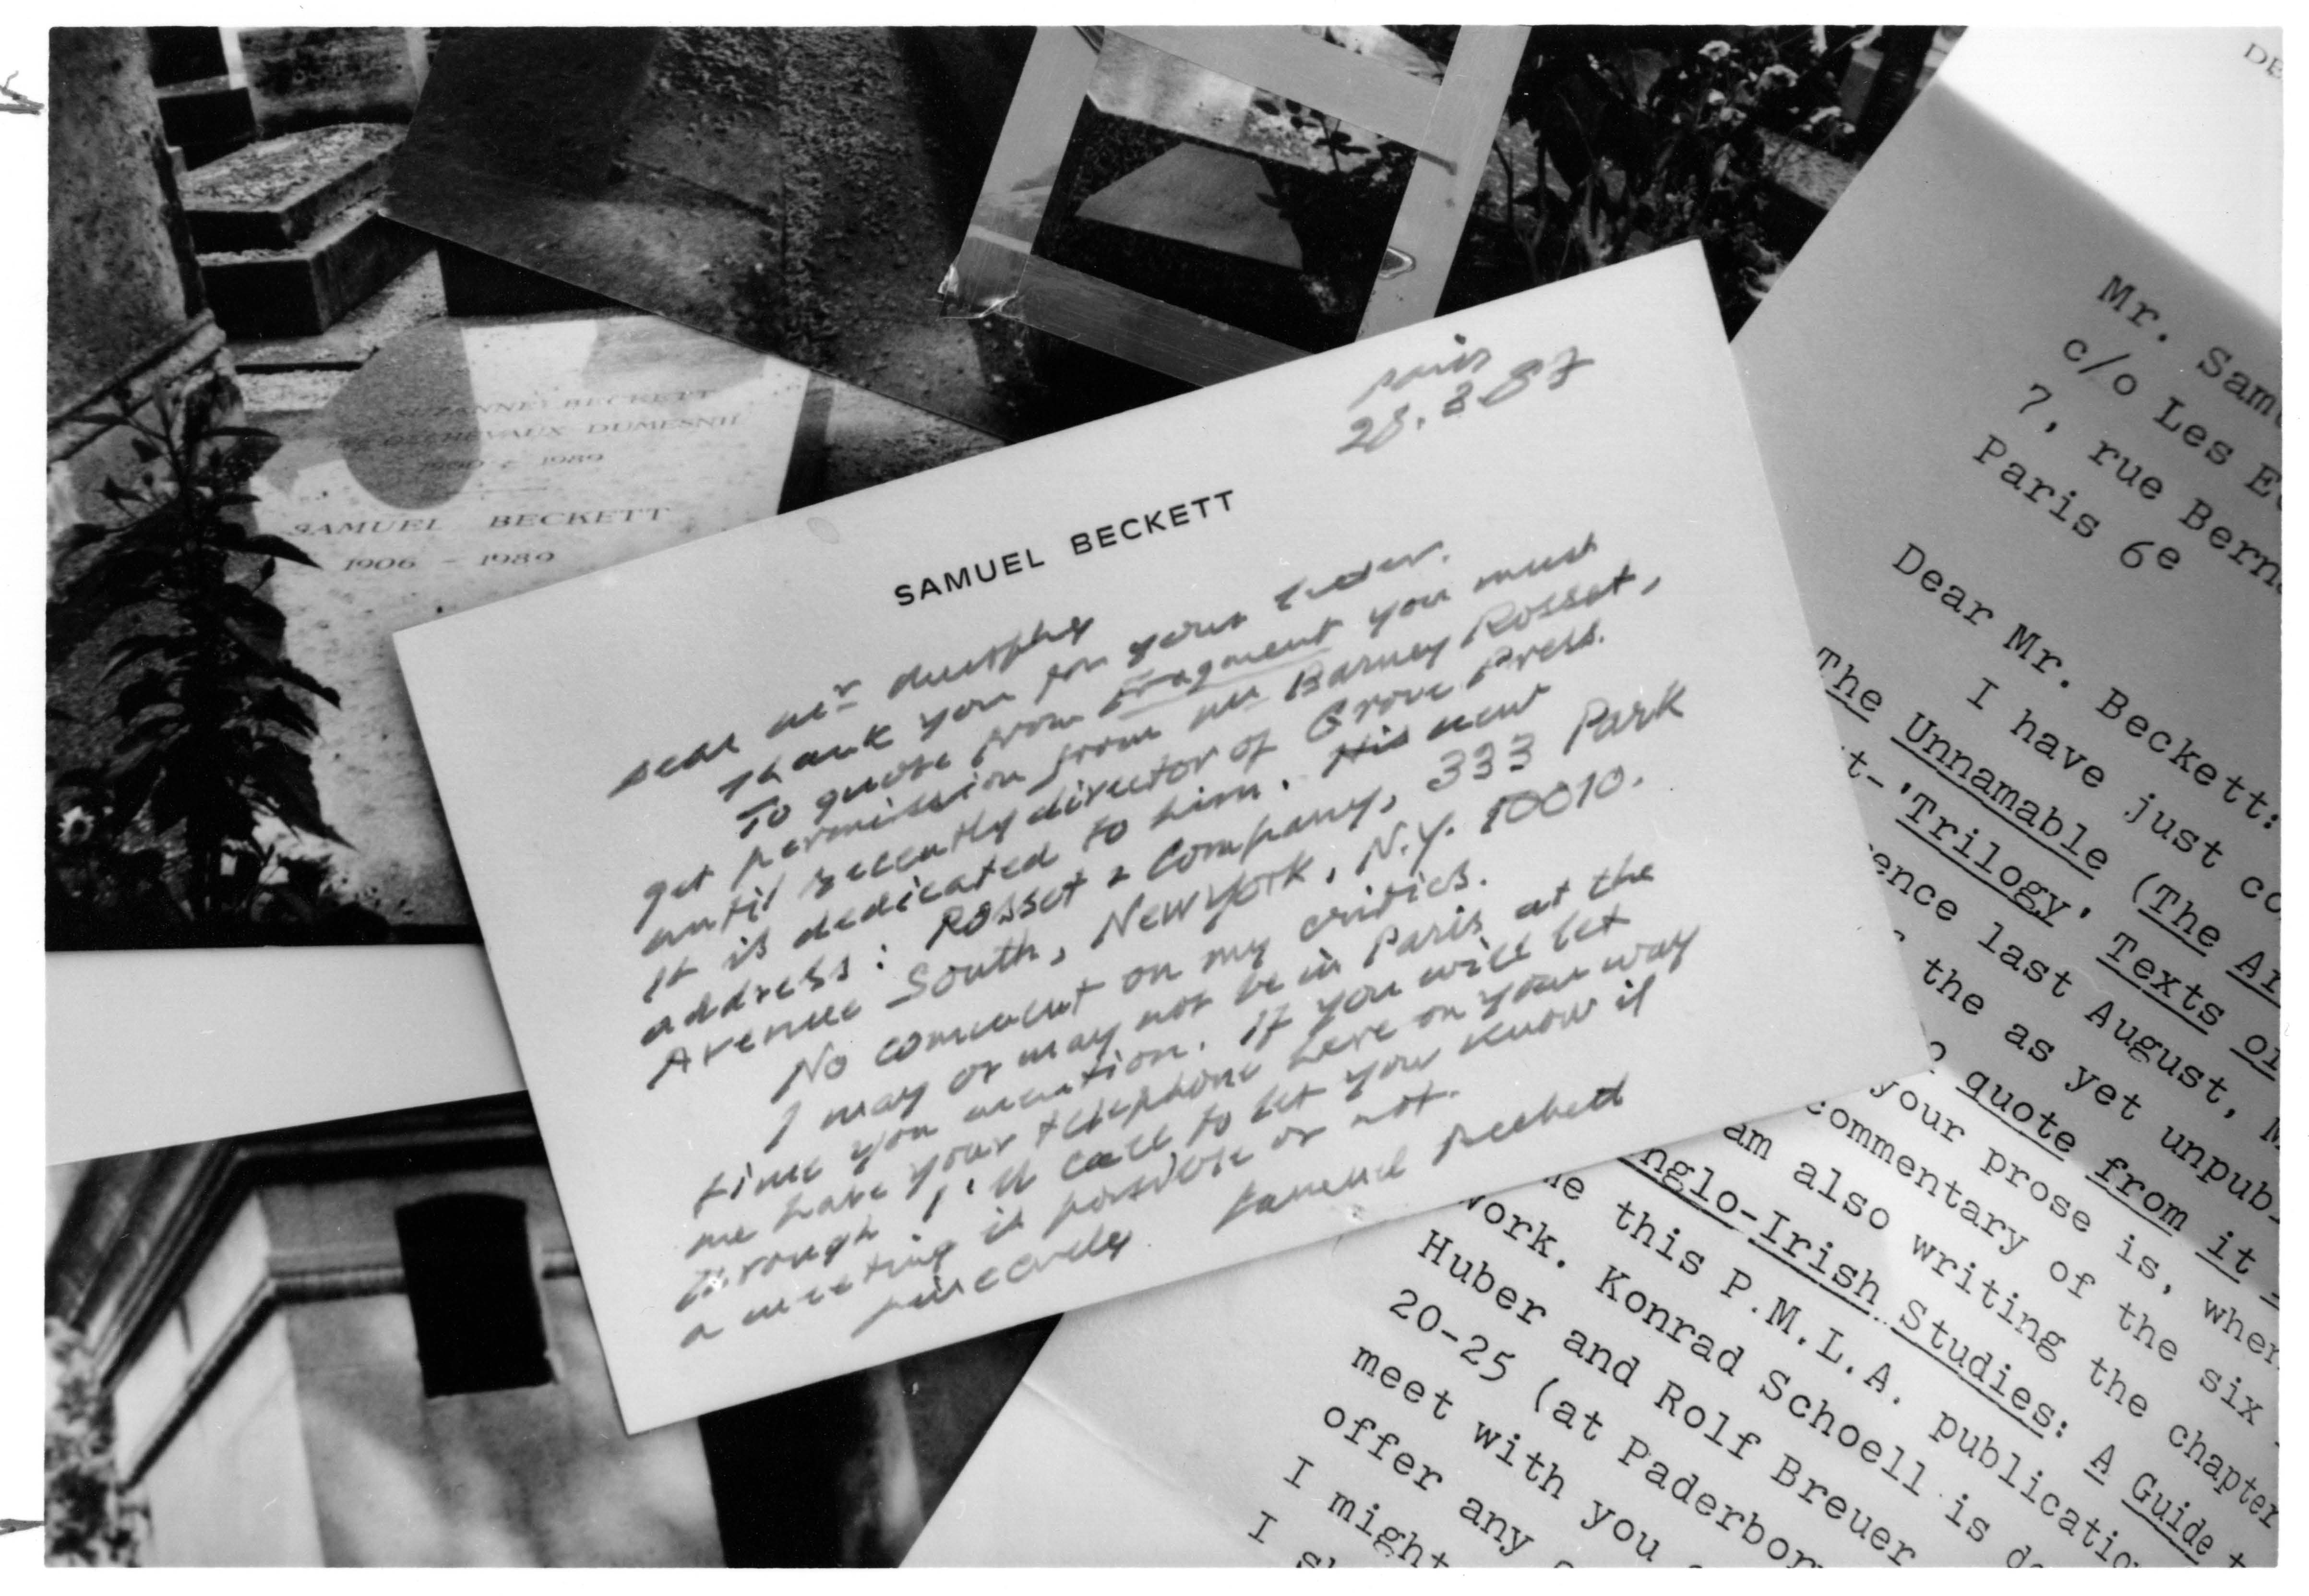 SUZANNE BECKETT
DUMESNIL
1900 - 1989
SAMUEL BECKETT
1906 - 1989
Paris
28.3.87
SAMUEL BECKETT
Dear Mr Murphy
Thank you for your letter.
To quote from Fragment you must
get permission from Mr Barney Rosset,
until recently director of Grove Press.
It is dedicated to him. His new
address: Rosset & Company, 333 Park
Avenue South, New York, N.Y. 10010.
No comment on my critics.
I may or may not be in Paris at the
time you mention. If you will let
me have your telephone here on your way
through I'll call to let you know if
a meeting is possible or not.
Sincerely
Samuel Beckett
DE
Mr. Samu
c/o Les E
7, rue Berna
Paris 6e
Dear Mr. Beckett:
I have just co
The Unnamable (The Ar
t-'Trilogy' Texts of
ence last August, M
the as yet unpubl
quote from it
your prose is, when
commentary of the six
am also writing the chapter
nglo-Irish Studies: A Guide t
e this P.M.L.A. publicatio
work. Konrad Schoell is do
Huber and Rolf Breuer
20-25 (at Paderborn
meet with you
offer any
I might
I s